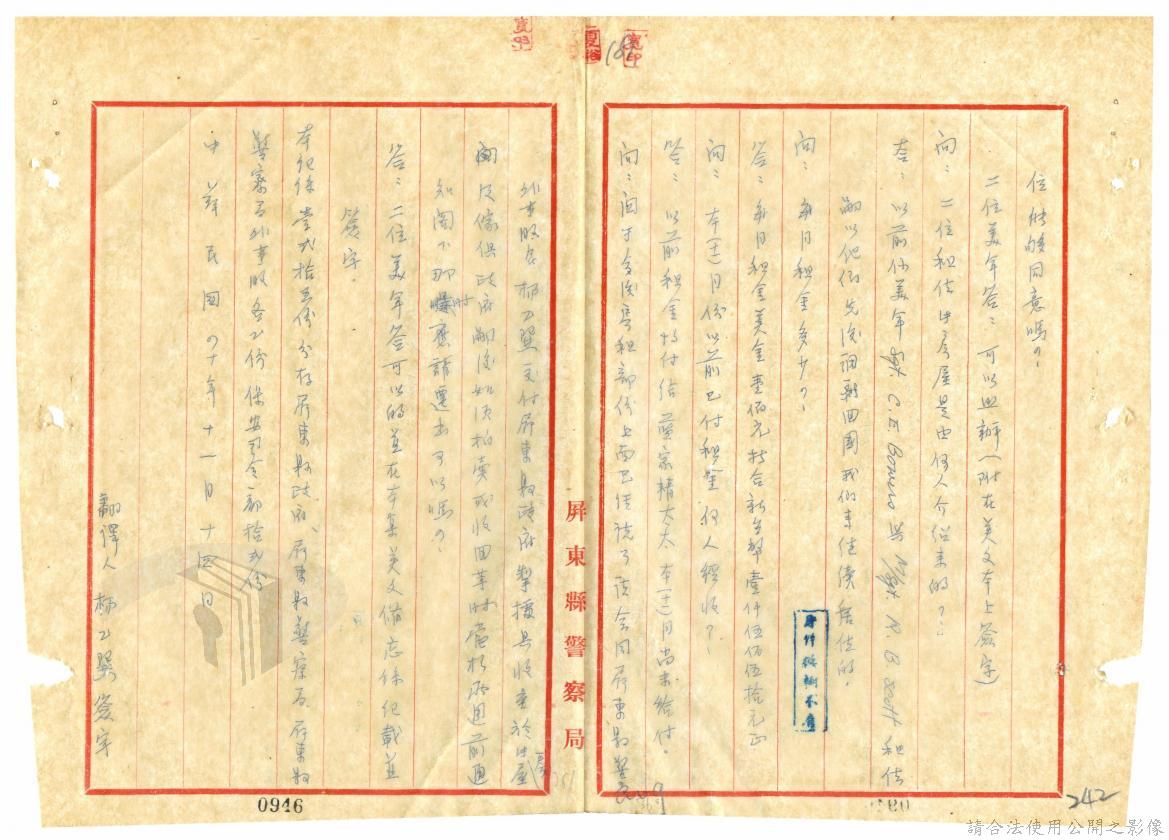 位能够同意嗎?
二位美年答:可以照辦(附在美文本上簽字)
問:二位租住此房屋是由何人介紹來的?
答:以前仍美年 Sgt. C. E. Bowers 與 M/Sgt R. B Scott 租住
嗣以他們先後調期回國我們來住續居住的。
問:每月租金多少?
答:每月租金美金壹佰元折合新台幣壹仟伍佰伍拾元正
問:本(十一)月份以前已付租金何人經收?
答:以前租金均付給 宗精太太本(十一)月尚未給付。
問:關于今後房租部份上面已經說了該會同屏東縣警民
外事股 楊乙巽交付屏東縣政府掣據具收至於此房屋
及傢俱政府嗣後如須拍賣或收回等時當於兩週前通
知閣下那時應請遷出可以嗎?
答:二位美年答可以的並在本案美文備忘錄紀載並
簽字。
本紀錄壹式拾 份分存屏東縣政府、屏東縣警察局、屏東縣
警察局外事股各乙份保安司令部拾弍份
中華民國四十年十一月十四日
翻譯人 楊乙巽簽字
屏東縣警察局
0946
242
請合法使用公開之影像